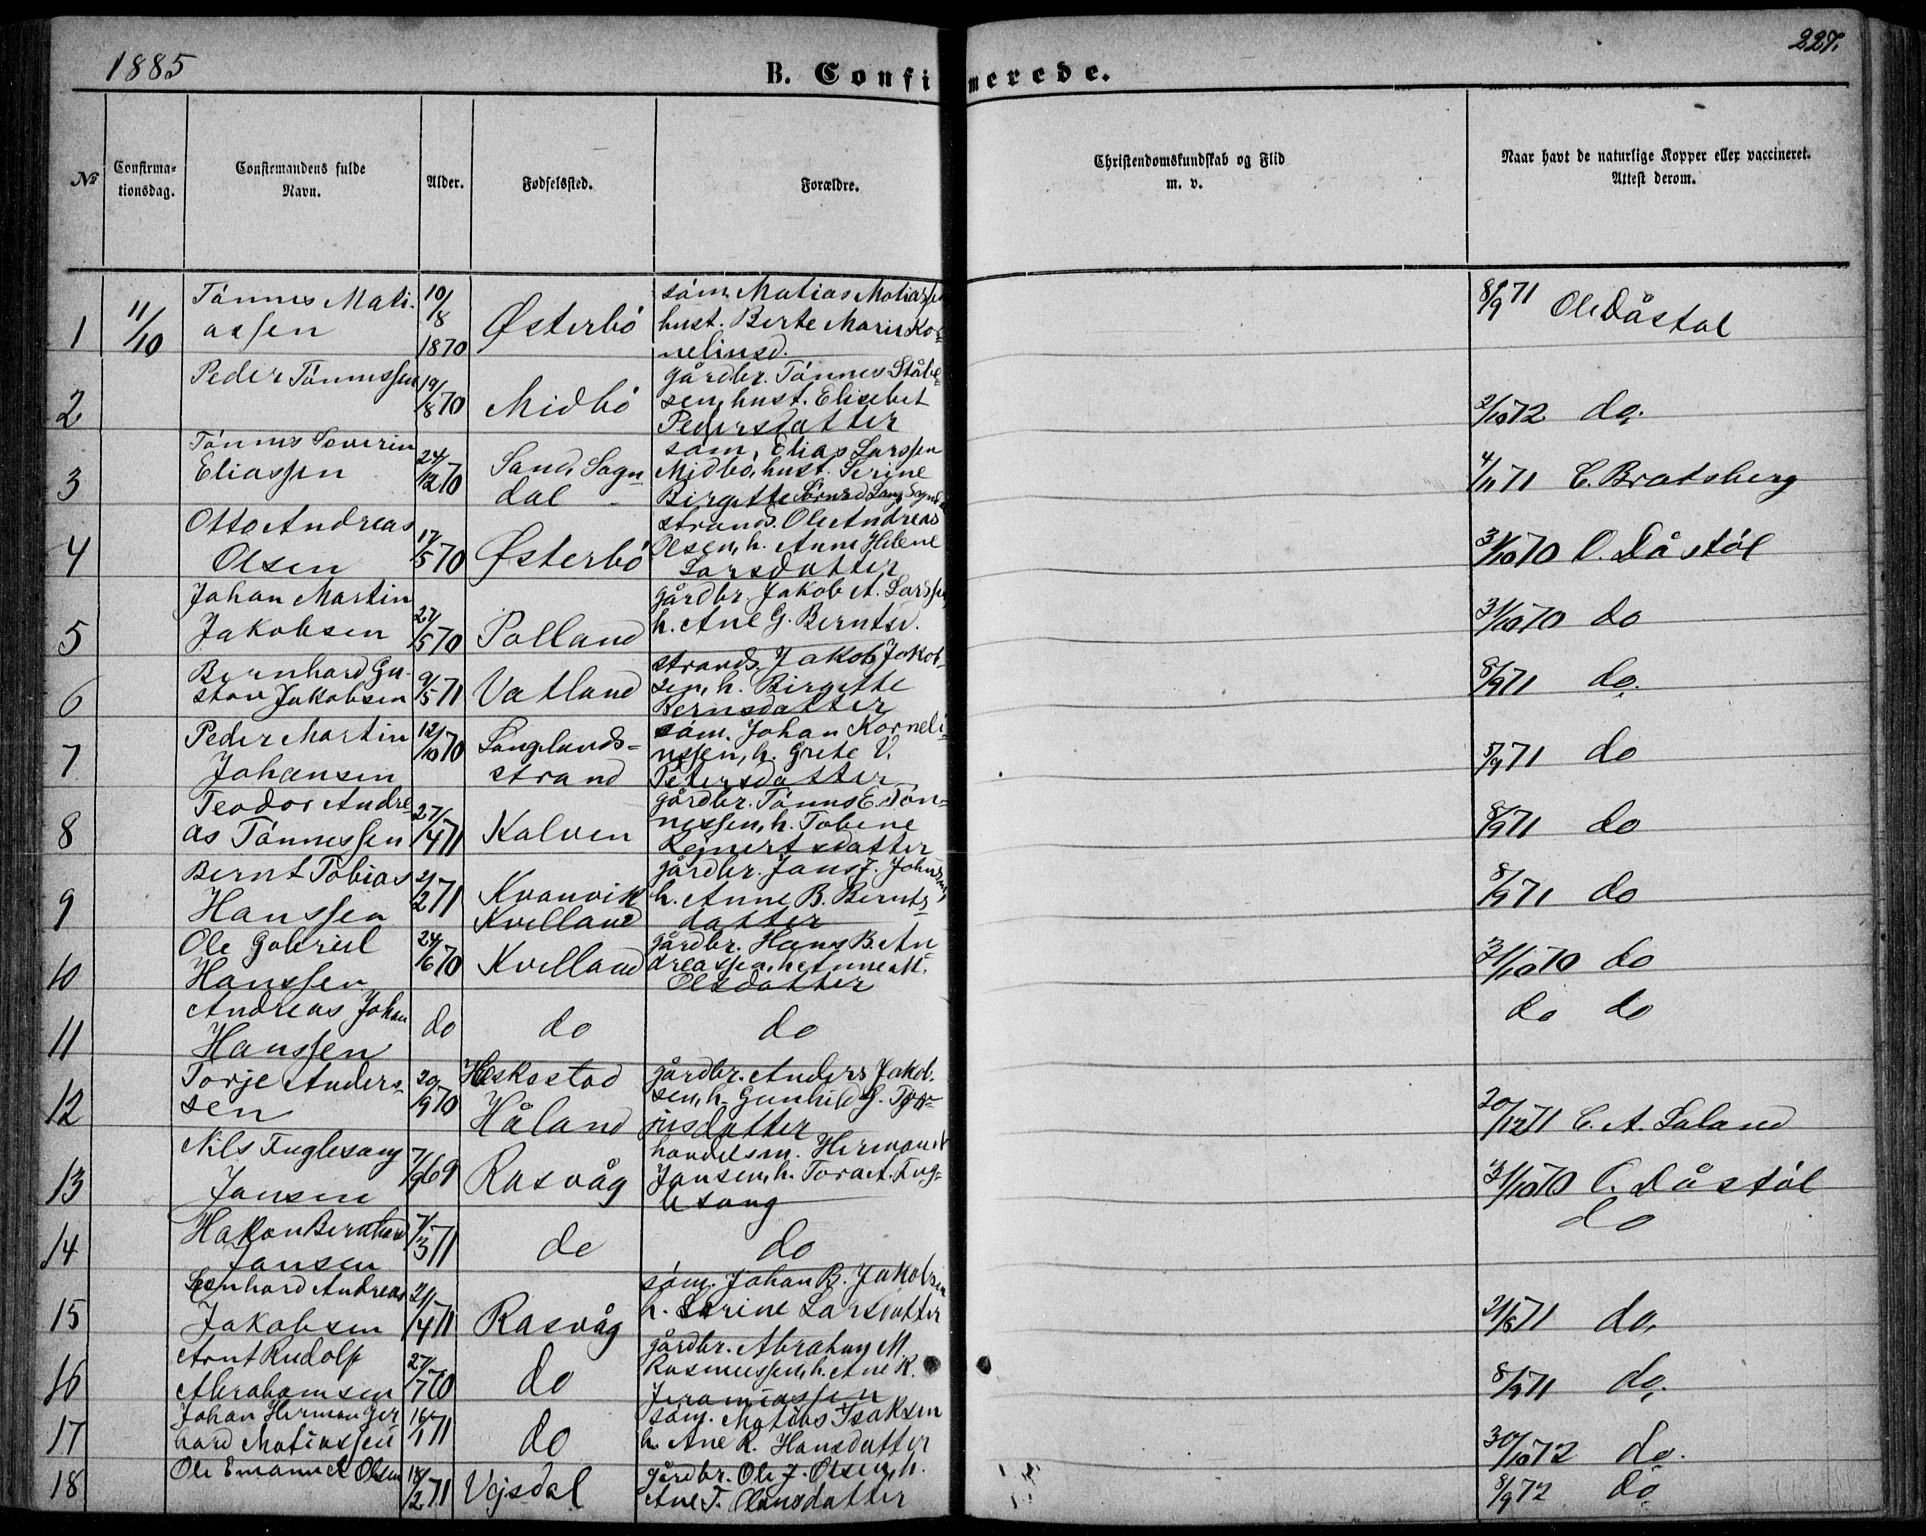 1885
B. Confirmerede.
227.
No
Confirma-
tionsdag.
Confirmandens fulde
Navn.
Alder.
Fødselssted.
Forældre.
Christendomskundskab og Flid
m. v.
Naar havt de naturlige Kopper eller vaccineret.
Attest derom.
1 11/10 Tönnes Mati-
assen
10/8
1870
Østerbö
söm. Matias Matiassen
hust. Berte Marie Kor-
neliusd.
8/9 71 Ole Dåstøl
2 Peder Tönnessen 19/8 70 Midbö
gårdbr. Tönnes Ståle-
sen, hust. Elisebet
Pedersdatter
2/10 72 do.
3 Tönnes Severin
Eliassen
24/12 70
Sand, Sogn-
dal
söm. Elias Larssen
Midbö, hust. Serine
Birgitte
4/11 71 C. Bratsberg
4 Otto Andreas
Olsen
17/5 70
Østerbö
strands. Ole Andreas
Olsen, h. Anne Helene
Larsdatter
31/10 70 O. Dåstøl
5 Johan Martin
Jakobsen
27/5 70
Polland
gårdbr. Jakob A. Larssen
h. Ane G. Berntsd.
31/10 70 do
6 Bernhard Gu-
stav Jakobsen
9/5 71
Vatland
strands. Jakob Jakob-
sen, h. Birgitte
Bernsdatter
8/9 71 do.
7 Peder Martin
Johansen
12/10 70
Langlands-
strand
söm. Johan Korneli-
ussen, h. Grete V.
Petersdatter
8/9 71 do
8 Teodor Andre-
as Tönnessen
27/4 71
Kalven
gårdbr. Tönnes E. Tön-
nessen, h. Tobine
Reinertsdatter
8/9 71 do
9 Bernt Tobias
Hanssen
21/2 71
Kvanvik
Kvelland
gårdbr. Jans J. Johnsen,
h. Anne B. Bernts-
datter
8/9 71 do
10 Ole Gabriel
Hanssen
24/6 70
Kvelland
gårdbr. Hans B. An-
dreassen, h. Anne M.
Olsdatter
31/10 70 do
11 Andreas Johan
Hanssen
do do do
do do
12 Torje Anders-
sen
20/9 70
Heskestad
Håland
gårdbr. Anders Jakob-
sen, h. Gunhild G. Tor-
jusdatter
20/12 71 C. A. Laland
13 Nils Fuglesang
Jansen
7/9 69
Rasvåg
handelsm. Herman
Jansen, h. Tora A. Fug-
lesang
31/10 70 O. Dåstøl
14 Hakon Bernhard
Jansen
7/3 71
do do
do
15 Leonhard Andreas
Jakobsen
21/4 71
Rasvåg
söm. Johan B. Jakobsen
h. Serine Larsdatter
21/6 71 do.
16 Arnt Rudolf
Abrahamsen
27/7 70
do
gårdbr. Abraham M.
Rasmussen, h. Ane K.
Jeremiassen
8/9 71 do.
17 Johan Herman Ger-
hard Matiassen
16/1 71
do
söm. Matias Isaksen
h. Ane K. Hansdatter
30/10 72 do.
18 Ole Emanuel Olsen 18/2 71 Vejsdal
gårdbr. Ole J. Olsen, h.
Ane T. Olausdatter
8/9 72 do